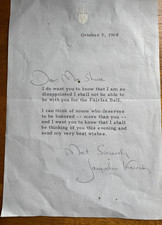 October 5, 1968
Dear Mr. Shaw
I do want you to know that I am so
disappointed I shall not be able to
be with you for the Fairfax Ball.
I can think of noone who deserves
to be honored -- more than you --
and I want you to know that I shall
be thinking of you this evening and
send my very best wishes.
Most Sincerely